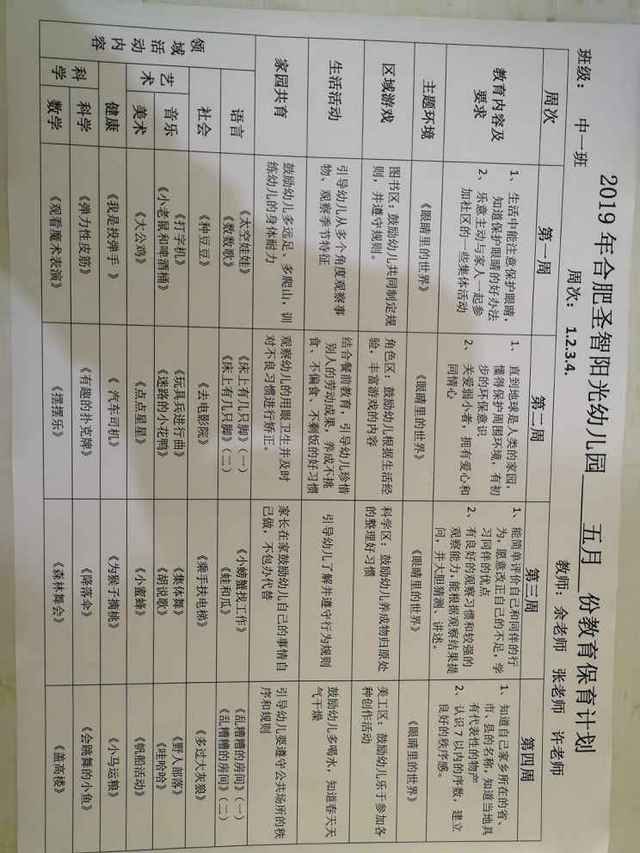 2019年合肥圣智阳光幼儿园 五月 份教育保育计划
班级： 中一班 周次： 1.2.3.4. 教师：余老师 张老师 许老师
周次 第一周 第二周 第三周 第四周
教育内容及要求
1、生活中能注意保护眼睛，
知道保护眼睛的好办法
2、乐意主动与家人一起参
加社区的一些集体活动
1、直到地球是人类的家园，
懂得保护周围环境，有初
步的环保意识
2、关爱弱小者，拥有爱心和
同情心
1、能简单评价自己和同伴的行
为，愿意改正自己的不足，学
习同伴的优点
2、有良好的观察习惯和较强的
观察能力，能根据观察结果提
问，并大胆猜测、讲述。
1、知道自己家乡所在的省、
市、县的名称，知道当地具
有代表性的物产
2、认识7以内的序数，建立
良好的秩序感。
主题环境 《眼睛里的世界》 《眼睛里的世界》 《眼睛里的世界》 《眼睛里的世界》
区域游戏
图书区：鼓励幼儿共同制定规
则，并遵守规则。
角色区：鼓励幼儿根据生活经
验，丰富游戏的内容
科学区：鼓励幼儿养成物归原处
的整理好习惯
美工区：鼓励幼儿乐于参加各
种创作活动
生活活动
引导幼儿从多个角度观察事
物、观察季节特征
结合餐前教育，引导幼儿珍惜
别人的劳动成果，养成不挑
食、不偏食、不剩饭的好习惯
引导幼儿了解并遵守行为规则
鼓励幼儿多喝水，知道春天天
气干燥
家园共育
鼓励幼儿多远足、多爬山，训
练幼儿的身体耐力
观察幼儿的用眼卫生并及时
对不良习惯进行矫正。
家长在家鼓励幼儿自己的事情自
己做，不包办代替
引导幼儿要遵守公共场所的秩
序和规则
领域活动内容
语言
《太空娃娃》
《数数歌》
《床上有几只脚》（一）
《床上有几只脚》（二）
《小螃蟹找工作》
《蛙和瓜》
《乱糟糟的房间》（一）
《乱糟糟的房间》（二）
社会 《种豆豆》 《去电影院》 《乘手扶电梯》 《多过大灰狼》
艺术
音乐
《打字机》
《小老鼠和啤酒桶》
《玩具兵进行曲》
《迷路的小花鸭》
《集体舞》
《胡说歌》
《野人部落》
《哇哈哈》
美术 《大公鸡》 《点点星星》 《小蜜蜂》 《帆船活动》
健康 《我是投弹手 》 《 汽车司机》 《为猴子摘桃》 《小马运粮》
科学
科学 《弹力性皮筋》 《有趣的扑克牌》 《降落伞》 《会跳舞的小鱼》
数学 《观看魔术表演》 《摆摆乐》 《森林舞会》 《盖高楼》